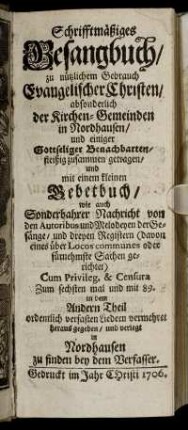 Schrifftmäßiges
Gesangbuch/
zu nützlichem Gebrauch
Evangelischer Christen/
absonderlich
der Kirchen-Gemeinden
in Nordhausen/
und einiger
Gottseliger Benachbarten/
fleißig zusammen getragen/
und
mit einem kleinen
Gebetbuch/
wie auch
Sonderbahrer Nachricht von
den Autoribus und Melodeyen der Ge-
sänge/ und dreyen Registern (davon
eines über Locos communes oder
fürnehmste Sachen ge-
richtet)
Cum Privileg. & Censura
Zum sechsten mal und mit 89.
in dem
Andern Theil
ordentlich verfasten Liedern vermehret
heraus gegeben/ und verlegt
in
Nordhausen
zu finden bey dem Verfasser.
Gedruckt im Jahr Christi 1706.